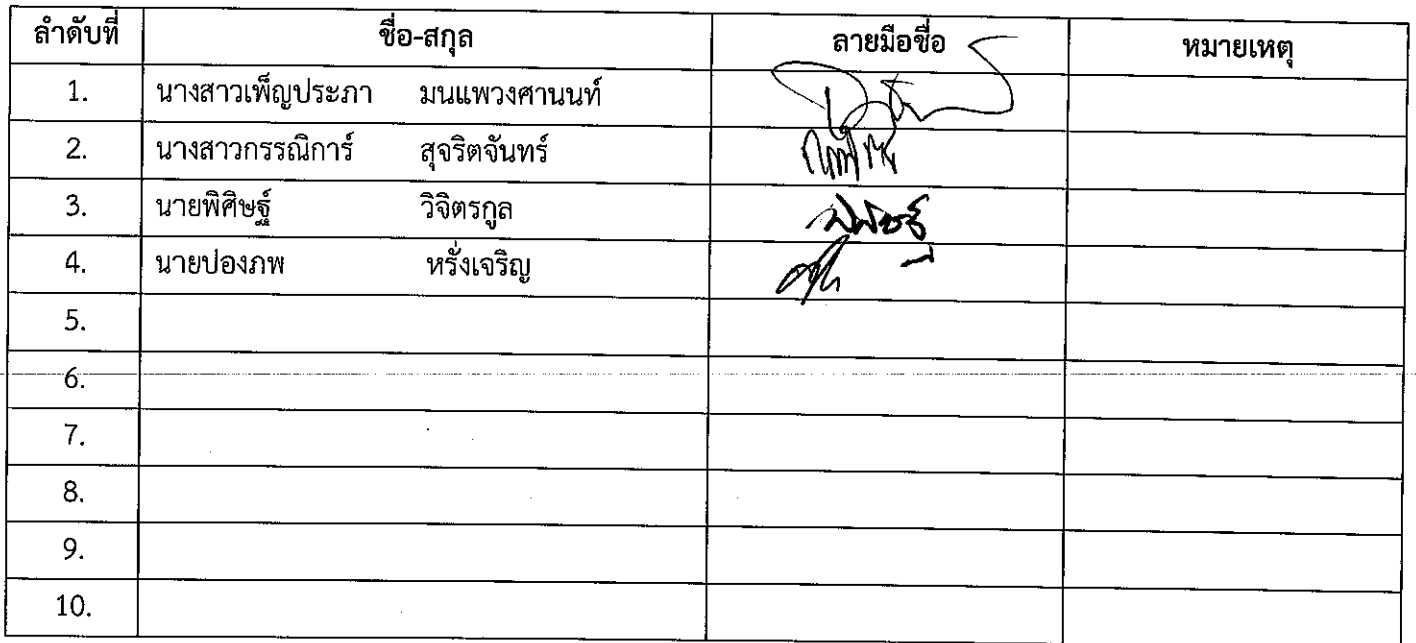 ลำดับที่ ชื่อ-สกุล ลายมือชื่อ หมายเหตุ
1. นางสาวเพ็ญประภา มนแพวงศานนท์
2. นางสาวกรรณิการ์ สุจริตจันทร์
3. นายพิศิษฐ์ วิจิตรกูล
4. นายปองภพ หรั่งเจริญ
5.
6.
7.
8.
9.
10.